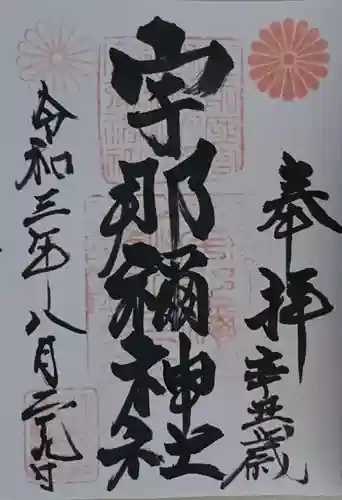 奉拝
辛丑歳
宇那禰神社
令和三年八月二十九日